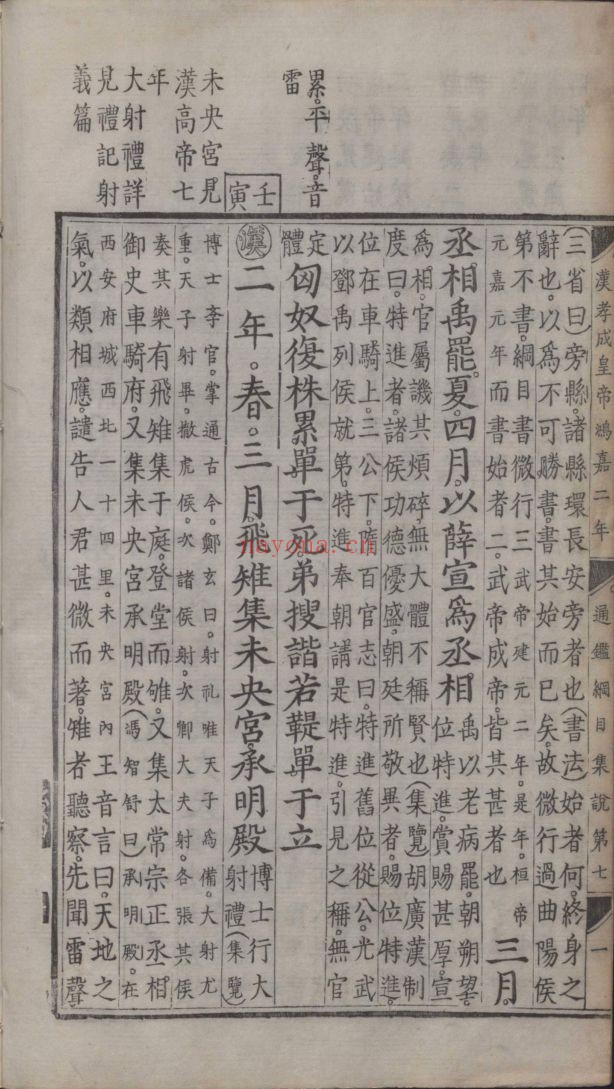 累平聲音
雷
壬寅
未央宮見
漢高帝七
年
大射禮詳
見禮記射
義篇
漢孝成皇帝鴻嘉二年 通鑑綱目集說第七 一
(三省曰)旁縣諸縣環長安旁者也(書法)始者何終身之
辭也。以爲不可勝書。書其始而已矣。故微行過曲陽侯
第不書。綱目書微行三武帝建元二年。是年。桓帝
元嘉元年而書始者二。武帝成帝。皆其甚者也 三月。
丞相禹罷。夏。四月。以薛宣爲丞相 禹以老病罷。朝朔望。
位特進。賞賜甚厚。宣
爲相。官屬譏其煩碎無大體不稱賢也(集覽)胡廣漢制
度曰。特進者。諸侯功德優盛。朝廷所敬異者。賜位特進。
位在車騎上。三公下。隋百官志曰。特進舊位從公。光武
以鄧禹列侯就第。特進奉朝請。是特進。引見之稱。無官
定
體 匈奴復株累單于死。弟搜諧若鞮單于立
漢二年。春。三月。飛雉集未央宮。承明殿 博士行大
射禮(集覽)
博士李官。掌通古今。鄭玄曰。射礼唯天子爲備。大射尤
重。天子射畢。撤虎侯。次諸侯射。次卿大夫射。各張其侯
奏其樂有飛雉集于庭。登堂而雊。又集太常宗正丞相
御史車騎府。又集未央宮承明殿(馮智舒曰)承明殿。在
西安府城西北一十四里。未央宮內王音言曰。天地之
氣。以類相應。譴告人君甚微而著。雉者聽察。先聞雷聲